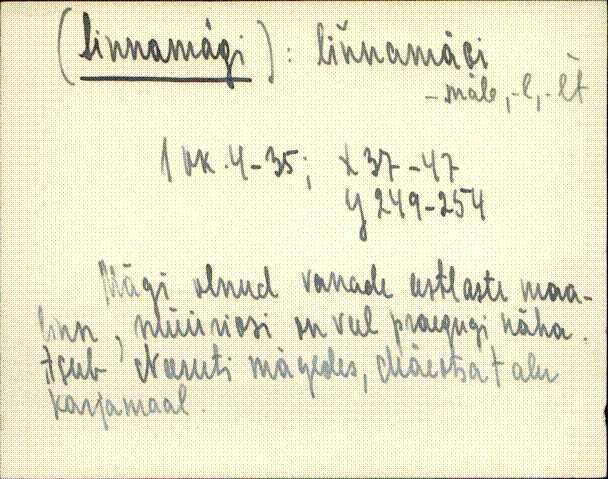 (Linnamägi): liňnamäǵi
-mäle, -l, -lt
1 vk. 4-35; x 37-47
y 249-254
Mägi olnud vanade eestlaste maa-
linn, müürivosi on veel praegugi näha.
Asub Neeruti mägedes, Mäeotsa t alu
karjamaal.